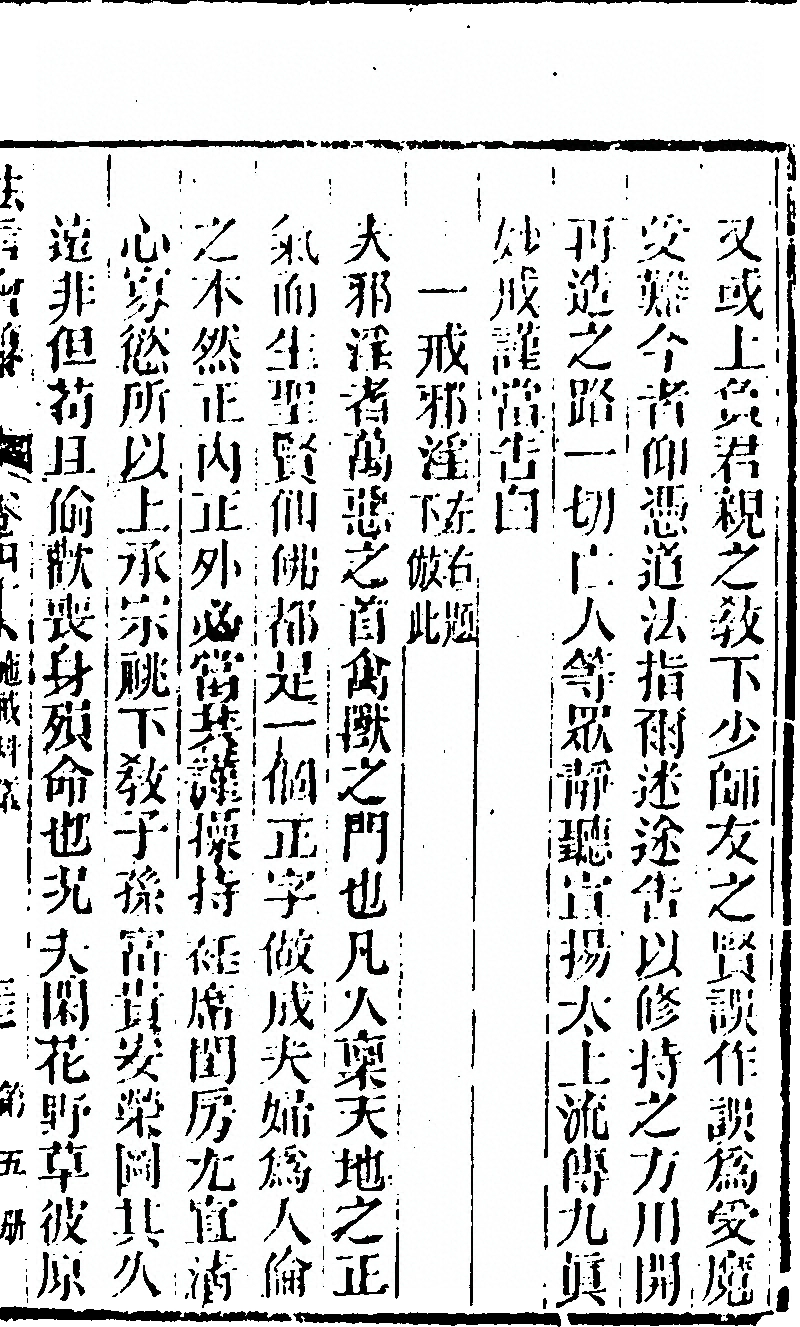 又或上負君親之教下少師友之賢誤作誤爲受魔
受難今者仰憑道法指爾迷途告以修持之方用開
再造之路一切亡人等眾靜聽宣揚太上流傳九眞
妙戒謹當告白
一戒邪淫左右題下倣此
夫邪淫者萬惡之首禽獸之門也凡人稟天地之正
氣而生聖賢仙佛都是一個正字做成夫婦爲人倫
之本然正內正外必當恭謹操持衽席閨房尤宜清
心寡慾所以上承宗祧下教子孫富貴安榮圖其久
遠非但苟且偷歡喪身殞命也況夫閑花野草彼原
法言會纂 卷四十八 施戒科儀 第五册